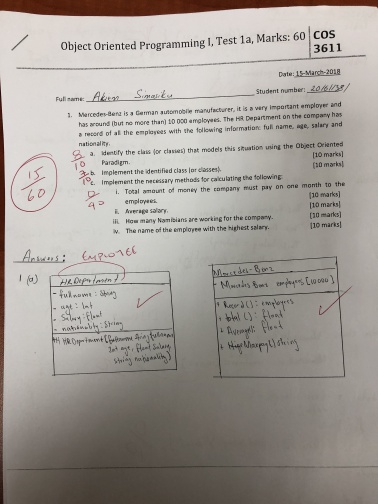 Object Oriented Programming I, Test 1a, Marks: 60
COS
3611
Date: 15-March-2018
Full name: Student number:
1. Mercedes-Benz is a German automobile manufacturer, it is a very important employer and
has around (but no more than) 10 000 employees. The HR Department on the company has
a record of all the employees with the following information: full name, age, salary and
nationality.
a. Identify the class (or classes) that models this situation using the Object Oriented
Paradigm. [10 marks]
b. Implement the identified class (or classes). [10 marks]
c. Implement the necessary methods for calculating the following:
i. Total amount of money the company must pay on one month to the
employees. [10 marks]
ii. Average salary. [10 marks]
iii. How many Namibians are working for the company. [10 marks]
iv. The name of the employee with the highest salary. [10 marks]
15
60
8
10
10
40
Answers: EMPLOYEE
1 (a)
HRDepartment
- fullname: String
- age: Int
- Salary: Float
- nationality: String
Mercedes-Benz
- Mercedes Benz employees [10000]
+ Record(): employees
+ total(): float
+ Average(): float